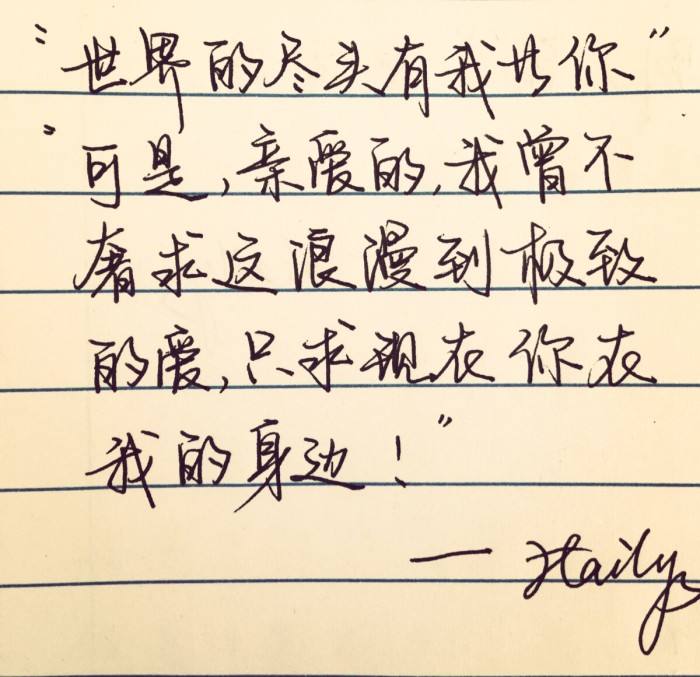 "世界的尽头有我共你"
"可是,亲爱的,我曾不
奢求这浪漫到极致
的爱,只求现在你在
我的身边!"
— Haily